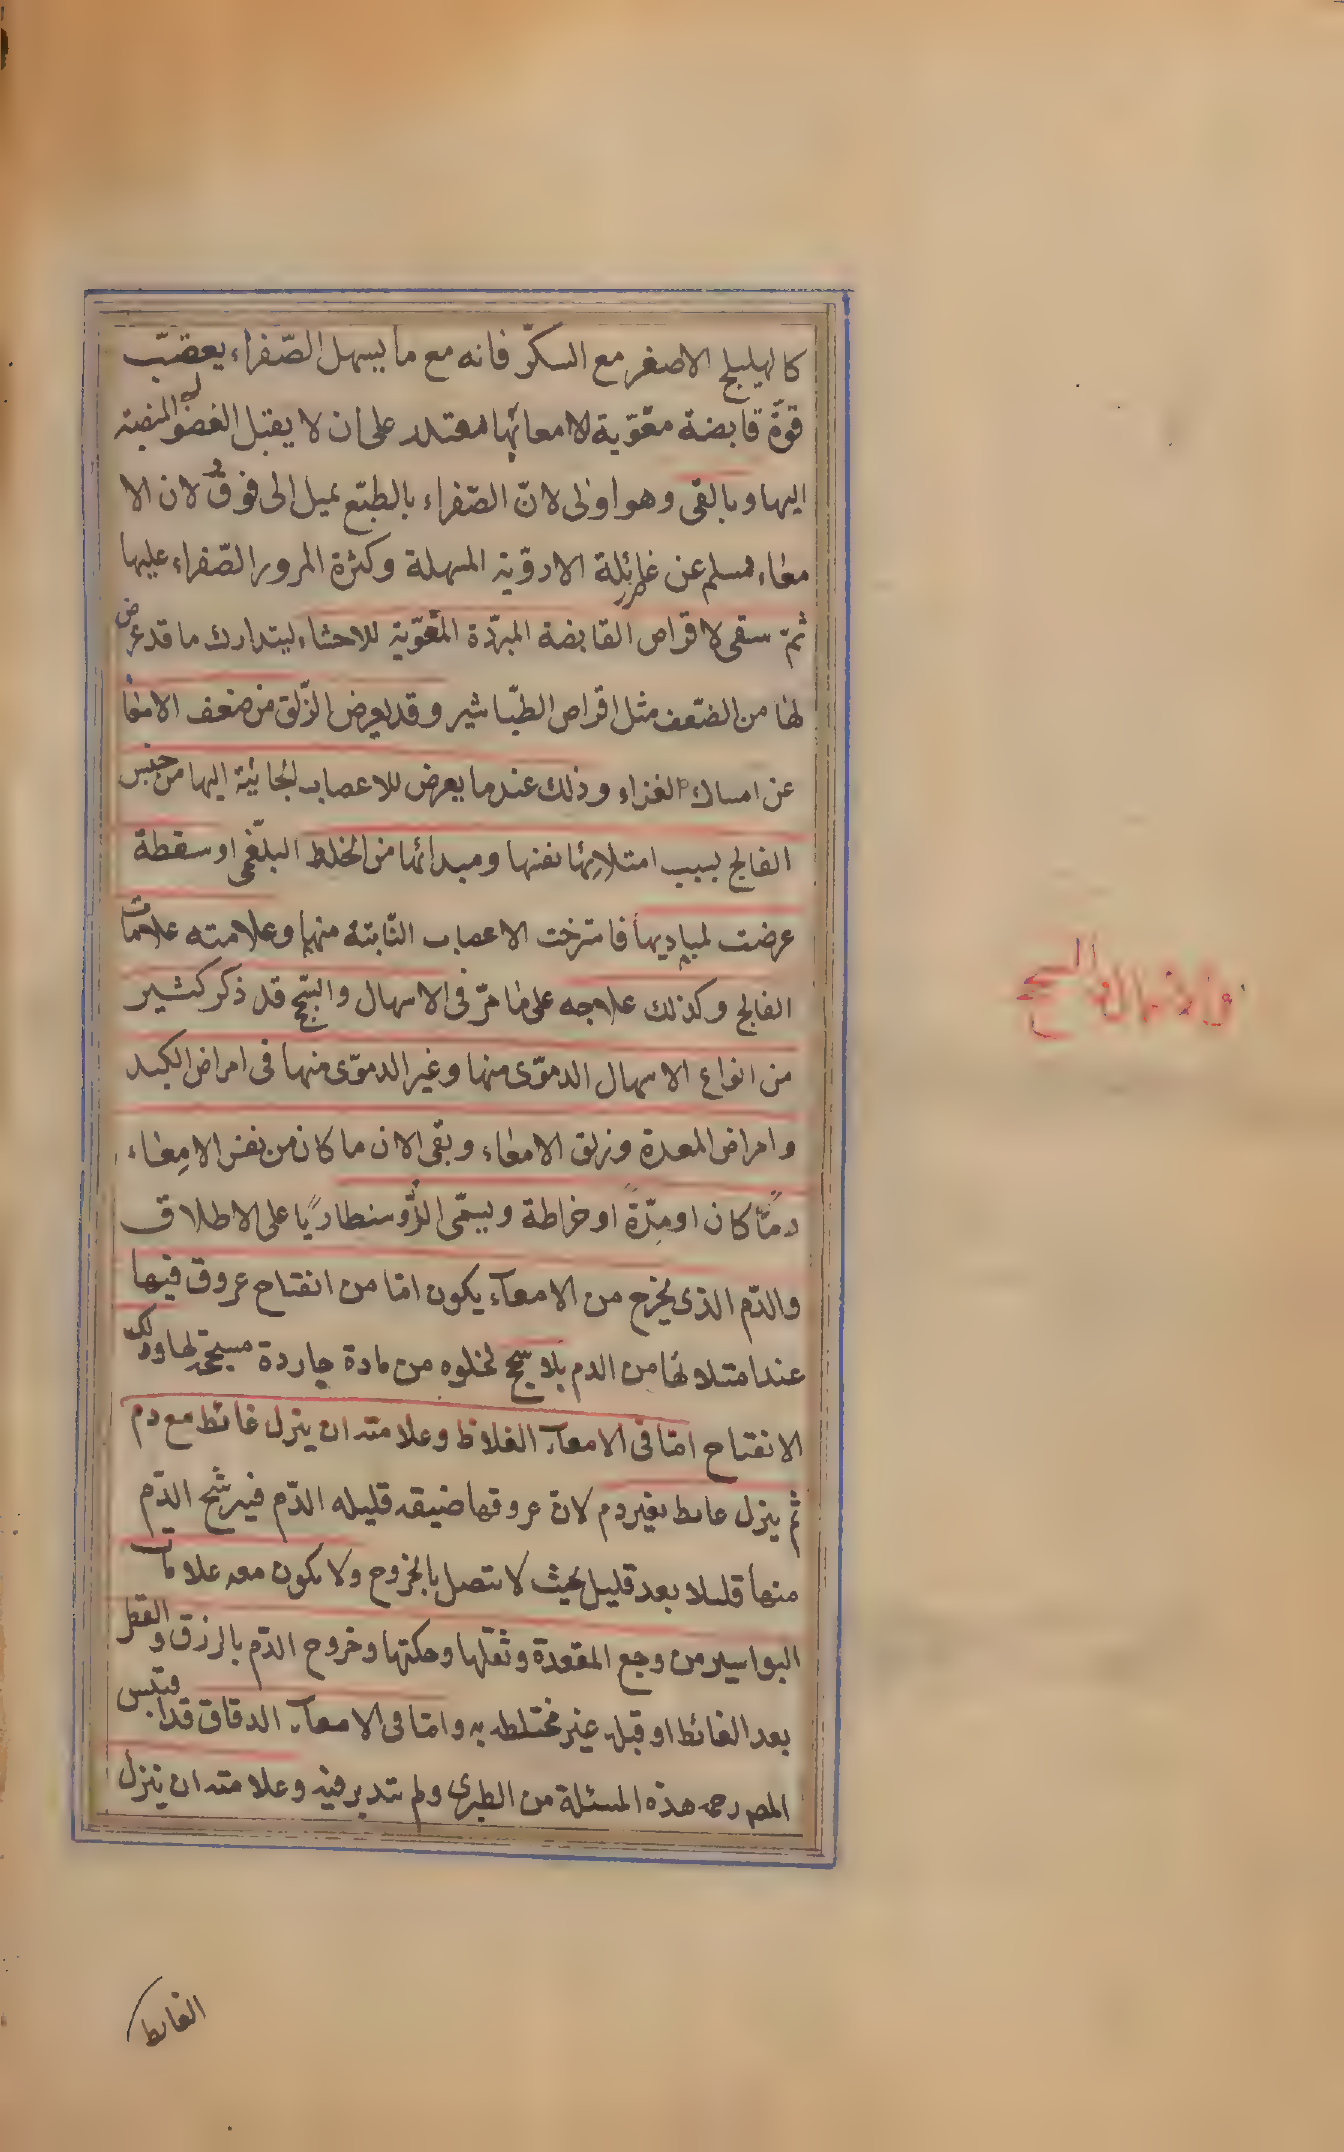 كالهليلج الاصغر مع السكّر فانه مع ما يسهل الصّفراء يعقب
قوّة قابضة مقوّية لامعائها مقتدر على ان لا يقبل الفضول المنصبّه
اليها وبالقى وهو اولى لانّ الصّفراء بالطبع يميل الى فوق ولان الا
معاء تسلم عن غائلة الادوّية المسهلة وكثرة المرور الصّفراء عليها
ثمّ سقى لاقراص القابضة المبرّدة المقوّية للاحشاء ليتدارك ما قد عرض
لها من الضّعف مثل اقراص الطبّاشير وقد يعرض الزّلق من ضعف الامعا
عن امساك الغذاء وذلك عند ما يعرض للاعصاب الجائية اليها من جنس
الفالج بسبب امتلائها نفسها ومبدائها من الخلط البلغمى او سقطة
عرضت لمباديها فاسترخت الاعصاب النّابتة منها وعلامته علامات
الفالج وكذلك علاجه على ما مرّ فى الاسهال والسّحج قد ذكر كثير
من انواع الاسهال الدموّى منها وغير الدموّى منها فى امراض الكبد
وامراض المعدة وزلق الامعاء وبقى الان ما كان من نفس الامعاء
دمًا كان او مِدّةً او خراطة ويسمّى الذّوسنطاريا على الاطلاق
والدّم الذى يخرج من الامعآء يكون امّا من انفتاح عروق فيها
عند امتلائها من الدم بلا سحج لخلوه من مادة حاردة مسحجة لها وذلك
الانفتاح امّا فى الامعآء الغلاظ وعلامته ان ينزل غائط مع دم
ثم ينزل غايط بغير دم لانّ عروقها ضيقه قليله الدّم فيرشح الدّم
منها قليلا بعد قليل بحيث لا يتصل بالخروج ولا يكون معه علامات
البواسير من وجع المقعدة وثقلها وحكتها وخروج الدّم بالرزق والقطر
بعد الغائط او قبله غير مختلطه به وامّا فى الامعآء الدقاق قد اقتبس
المص رحمه هذه المسئلة من الطبرى ولم يتدبر فيه وعلامته ان ينزل
الغايط
فى الاسهال السحج